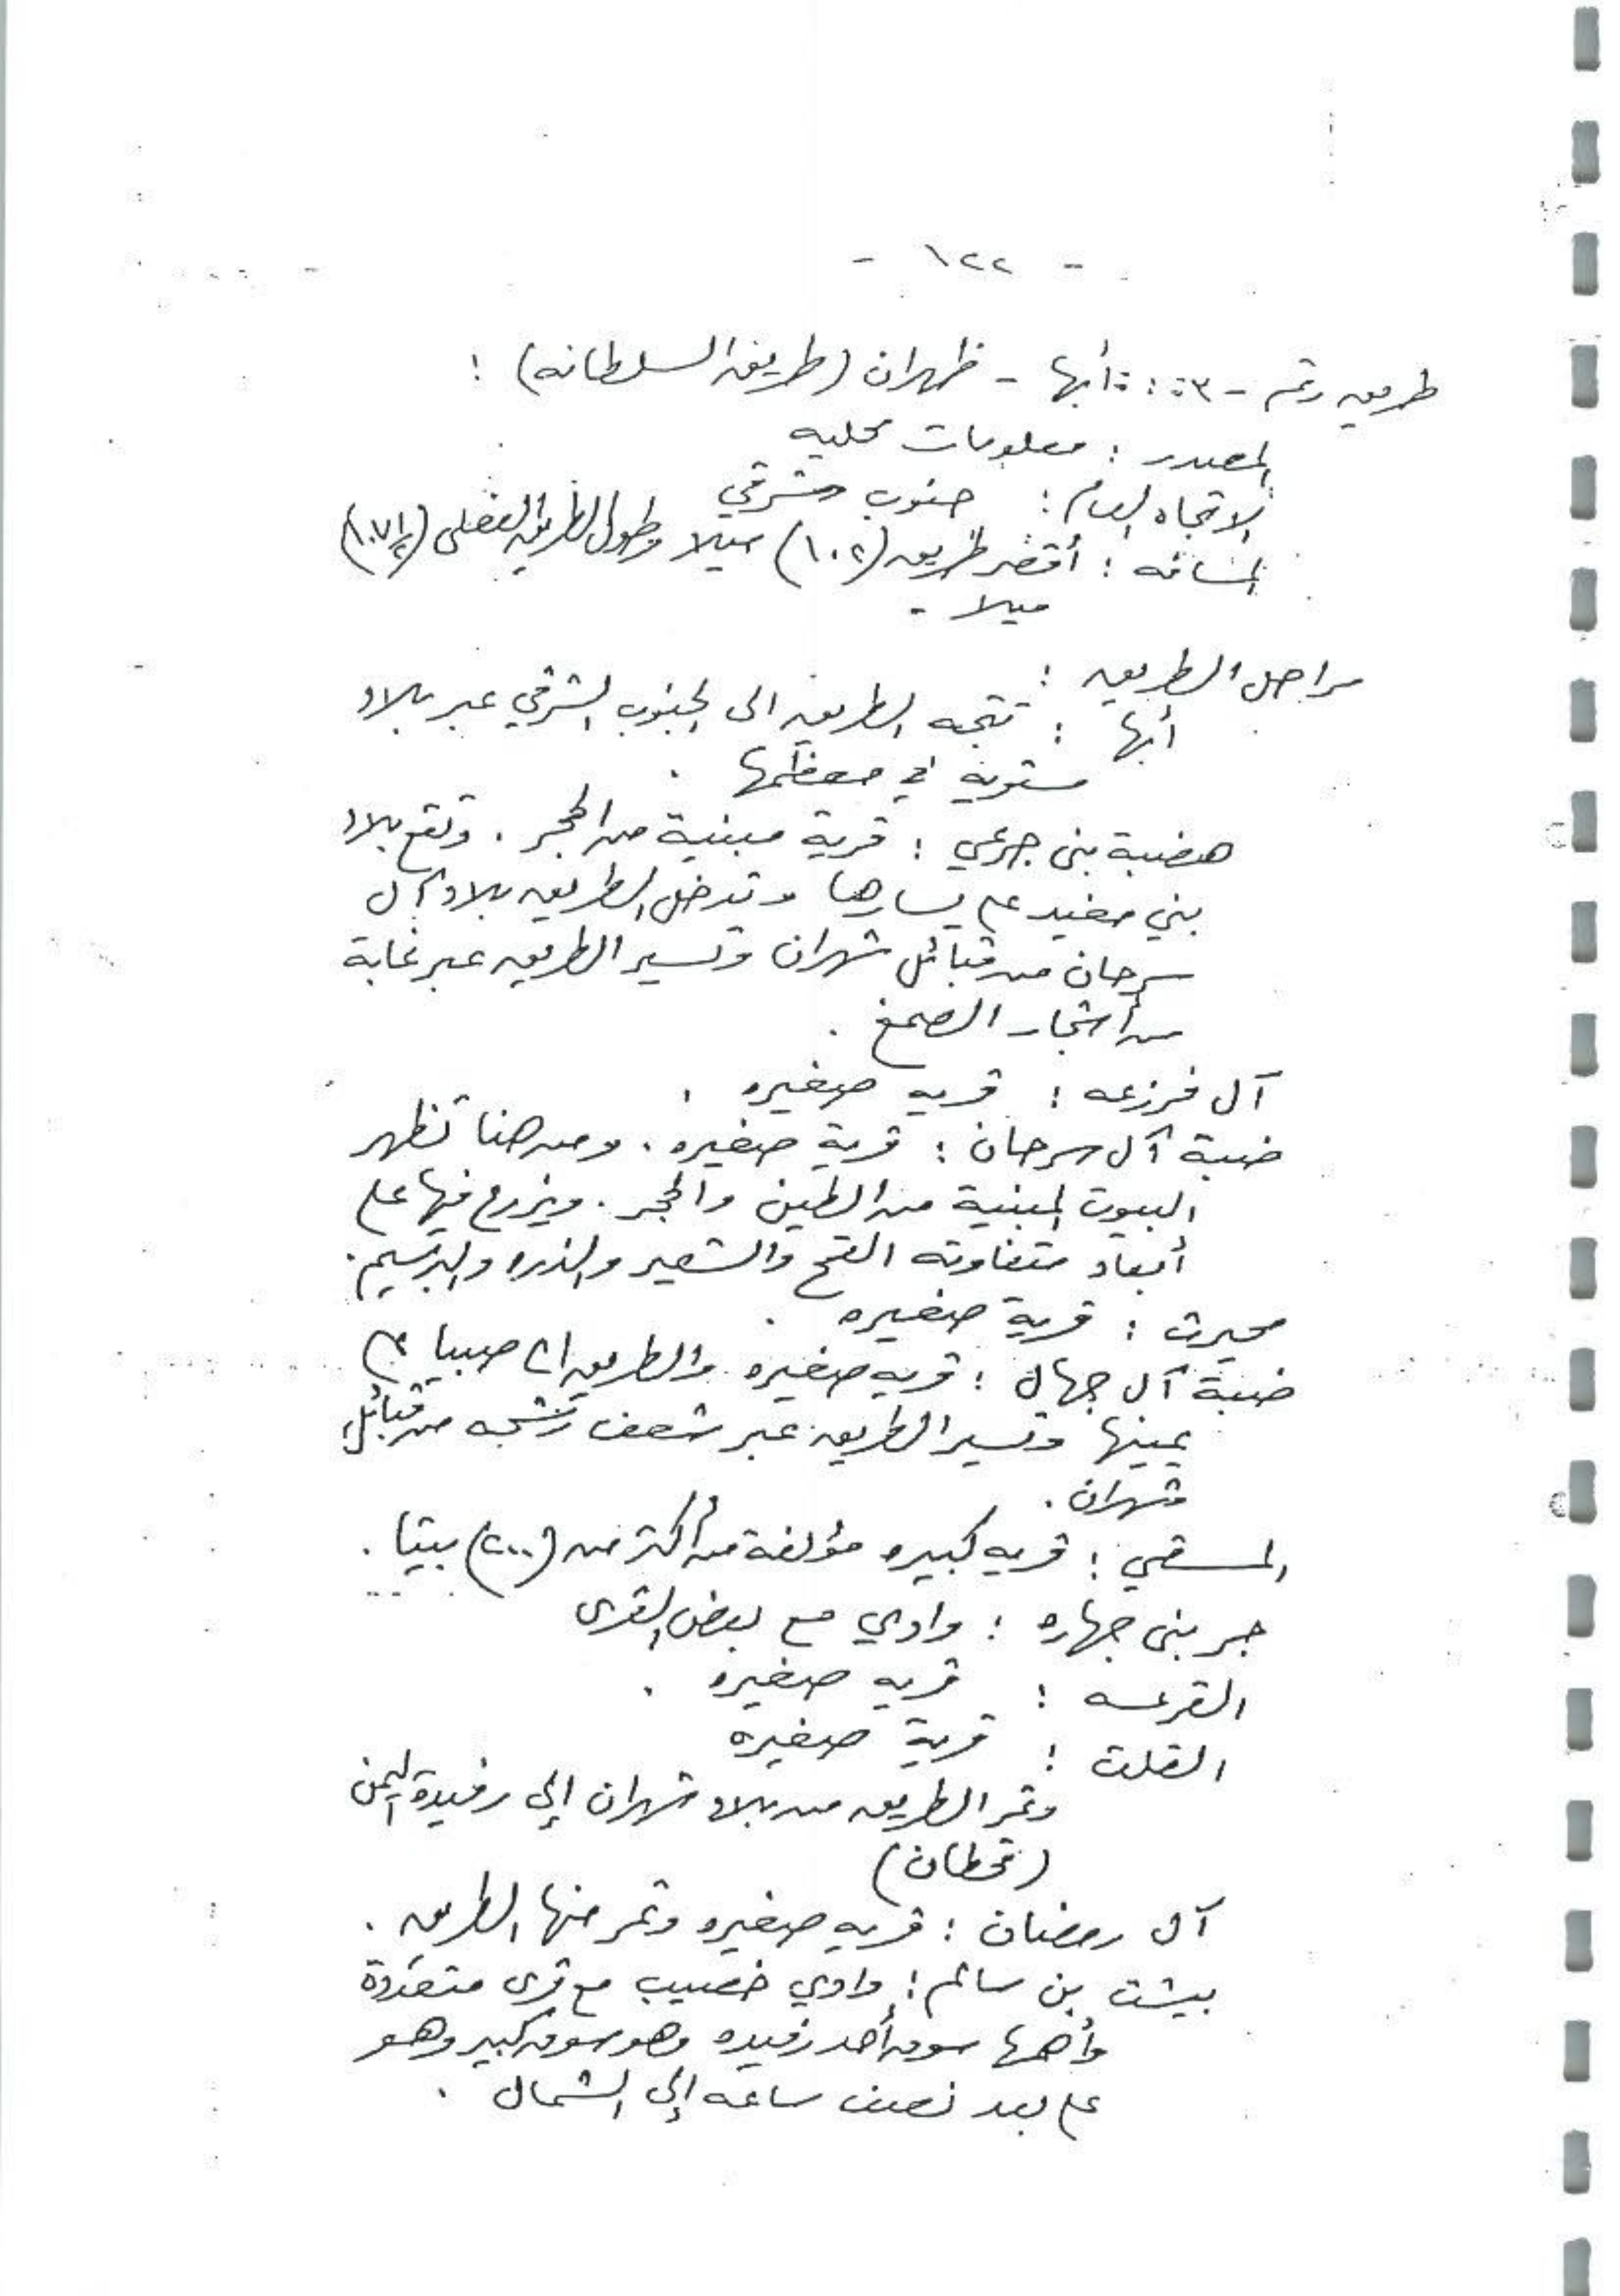 - ١٢٢ -
طريق رقم - ٣ : : أبها - ظهران (طريق السلطانه) :
المصدر : معلومات محليه
الاتجاه العام : جنوب شرقي
المسافه : أقصر طريق (١٠٢) ميلا وطول الطريق الفعلى (١٠٧١/٢)
ميلا -
مراحل الطريق :
أبها : تتجه الطريق الى الجنوب الشرقي عبر بلاد
مستويه في معظمها .
هضبة بنى جرعي : قرية مبنية من الحجر . وتقع بلاد
بني مغيد على يسارها وتدخل الطريق بلاد آل
سرحان من قبائل شهران وتسير الطريق عبر غابة
من أشجار الصمغ .
آل فرزعه : قريه صغيره .
ضبة آل سرحان : قرية صغيره . ومن هنا تظهر
البيوت المبنية من الطين والحجر . ويزرع فيها على
أبعاد متفاوته القمح والشعير والذره والبرسيم .
محيرث : قرية صغيره .
ضبة آل جهال : قريه صغيره والطريق الى صبيا على
يمينها وتسير الطريق عبر شعف من قبائل
شهران .
المسقي : قريه كبيره مؤلفة من أكثر من (٢٠٠) بيتا .
جر بنى جهاره : وادي مع بعض القرى
القرعه : قريه صغيره .
القلت : قرية صغيره
وتمر الطريق من بلاد شهران إلى رفيدة اليمن
(قحطان)
آل رمضان : قريه صغيره وتمر منها الطريق .
بيشت بن سالم : وادي خصيب مع قرى متعددة
وأهمها سوق أحد رفيده وهو سوق كبير وهو
على بعد نصف ساعه إلى الشمال .